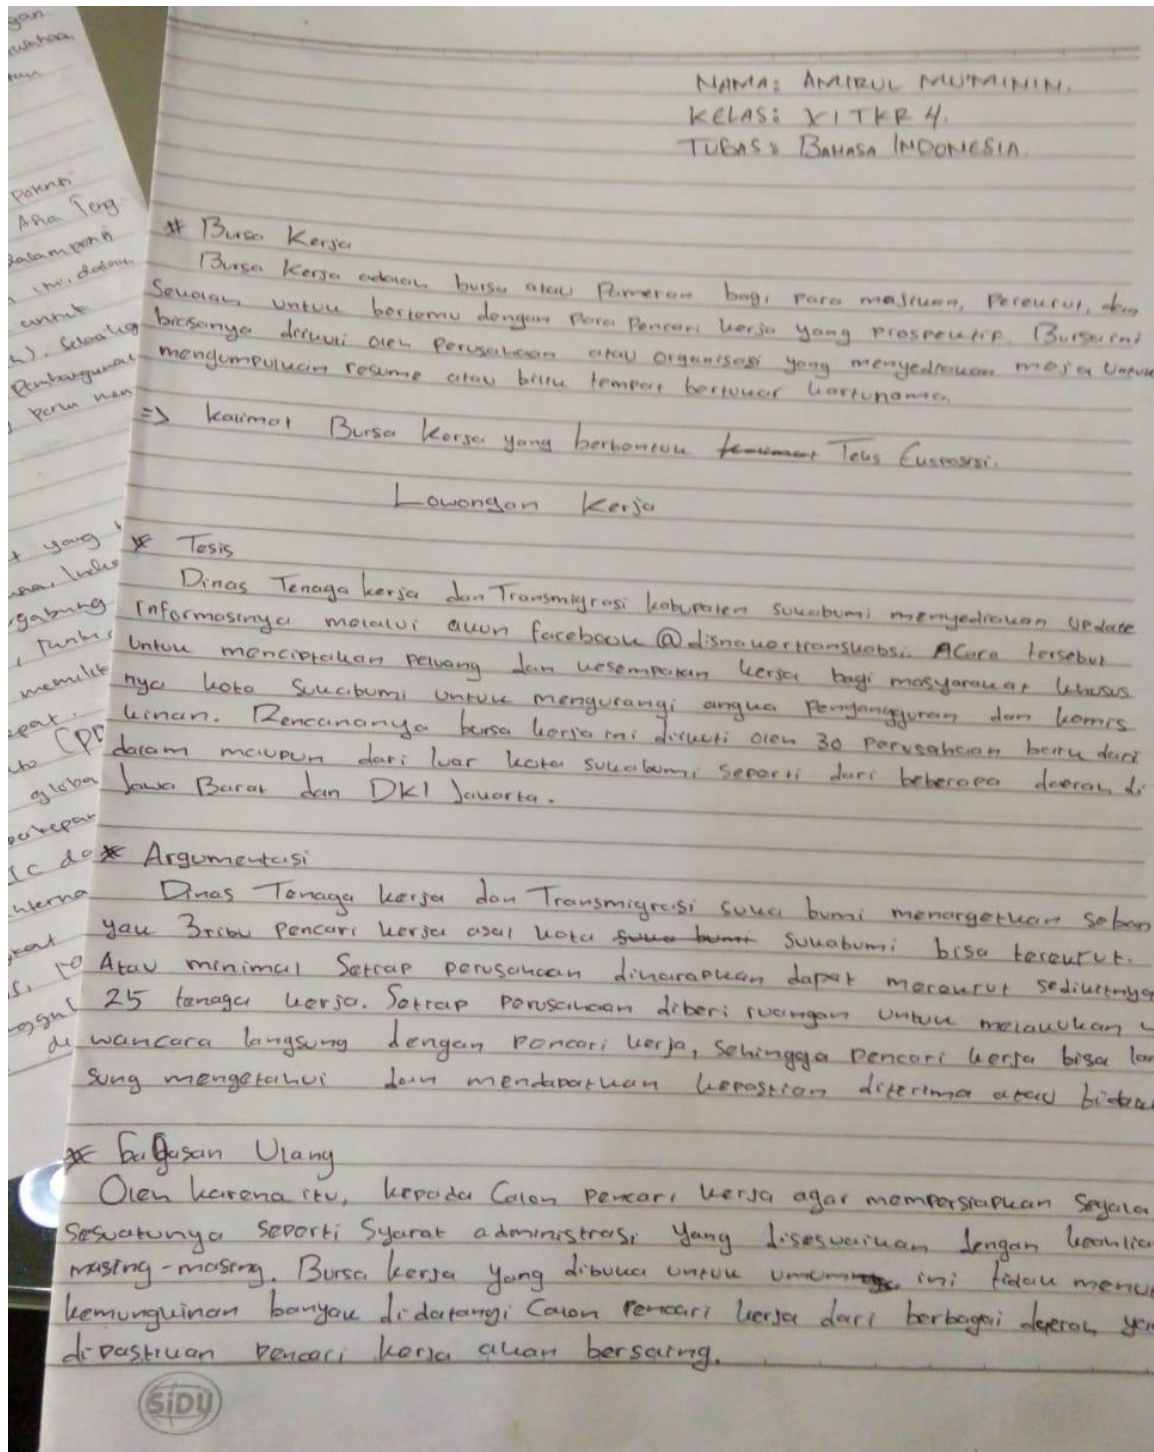 NAMA: AMIRUL MU'MININ.
KELAS: XI TKR 4.
TUGAS: BAHASA INDONESIA.
# Bursa Kerja
Bursa Kerja adalah bursa atau Pameran bagi para majikan, Perekrut, dan
Sekolah untuk bertemu dengan Para Pencari kerja yang prospektip. Bursa ini
biasanya diikuti oleh Perusahaan atau organisasi yang menyediakan meja Untuk
mengumpulkan resume atau bilik tempat bertukar kartunama.
=> kalimat Bursa Kerja yang berbentuk Teks Eksposisi.
Lowongan Kerja
* Tesis
Dinas Tenaga kerja dan Transmigrasi kabupaten sukabumi menyediakan Update
Informasinya melalui akun facebook @disnakertranskabsi. Acara tersebut
Untuk menciptakan Peluang dan kesempatan kerja bagi masyarakat khusus
nya kota Sukabumi untuk mengurangi angka Pengangguran dan kemis
kinan. Rencananya bursa kerja ini diikuti oleh 30 Perusahaan baik dari
dalam maupun dari luar kota sukabumi seperti dari beberapa daerah di
Jawa Barat dan DKI Jakarta.
* Argumentasi
Dinas Tenaga kerja dan Transmigrasi suka bumi menargetkan seban
yak 3ribu Pencari kerja asal kota sukabumi bisa terekrut.
Atau minimal Setiap perusahaan diharapkan dapat merekrut sedikitnya
25 tenaga kerja. Setiap Perusahaan diberi ruangan Untuk melakukan
wancara langsung dengan Pencari kerja, sehingga Pencari kerja bisa lan
sung mengetahui dan mendapatkan kepastian diterima atau
* Gagasan Ulang
Oleh karena itu, kepada Calon Pencari kerja agar mempersiapkan segala
Sesuatunya seperti Syarat administrasi yang disesuaikan dengan keahlia
masing-masing. Bursa kerja yang dibuka untuk umum ini tidak menut
kemungkinan banyak didatangi Calon Pencari kerja dari berbagai daerah ya
dipastikan Pencari kerja akan bersaing.
SiDU